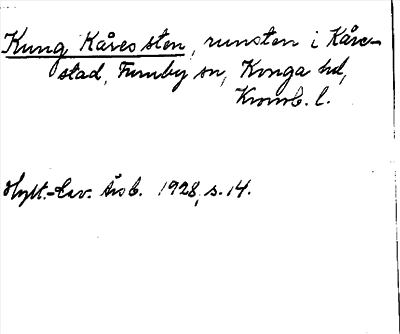 Kung Kåres sten, runsten i Kåre-
stad, Furuby sn, Konga hd,
Kronob. l.
Hylt.-Cav. Årsb. 1928, s. 14.